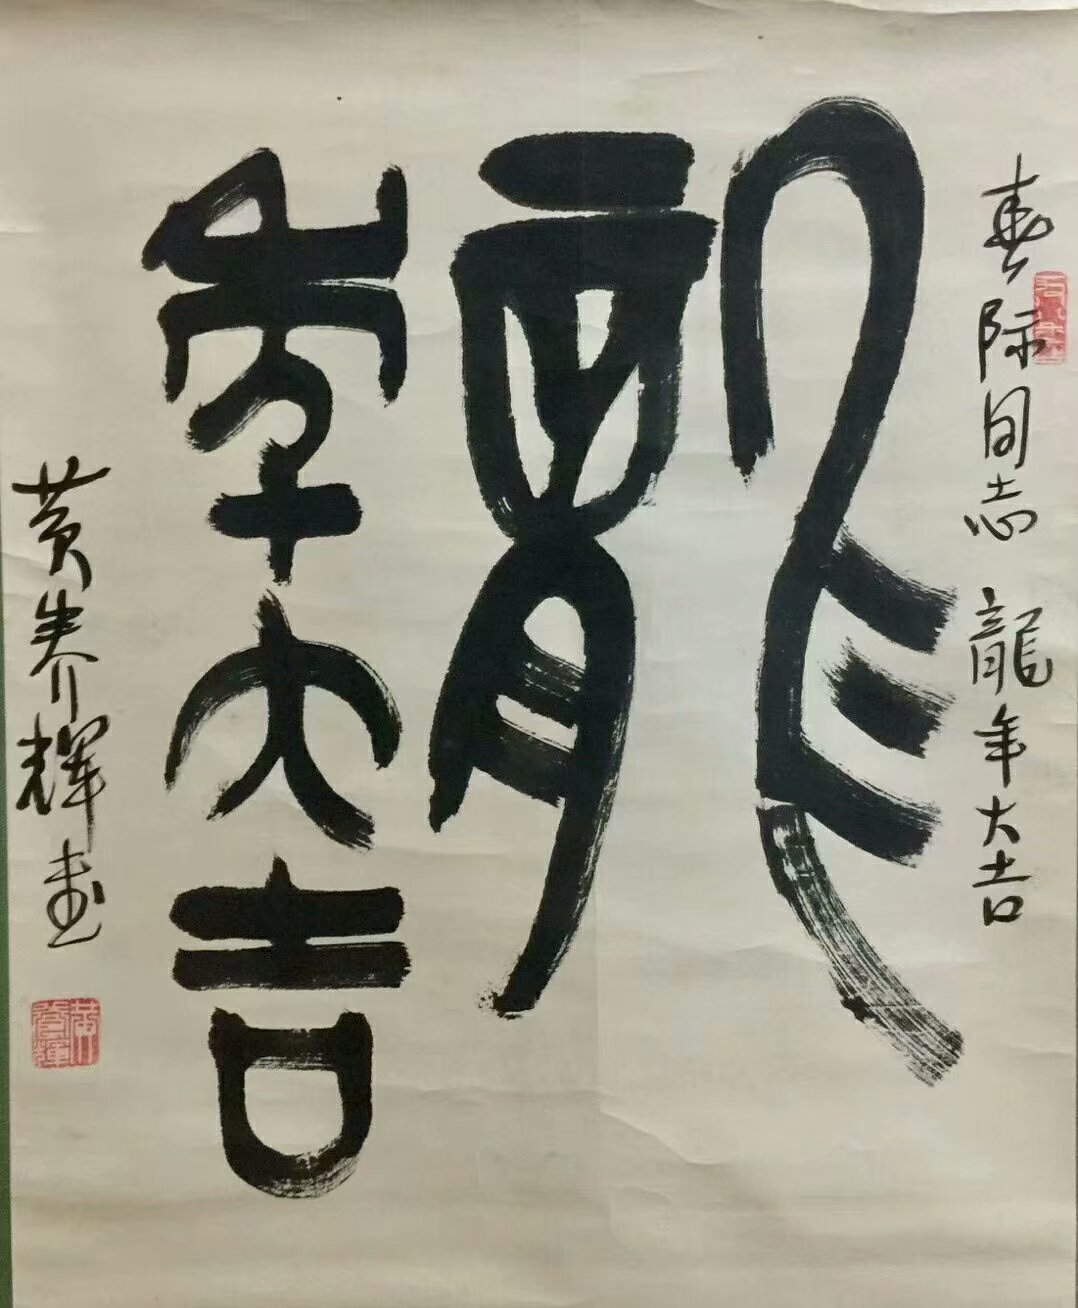 际同志 龍年大吉
龍
年大吉
黄养輝書
黄養輝